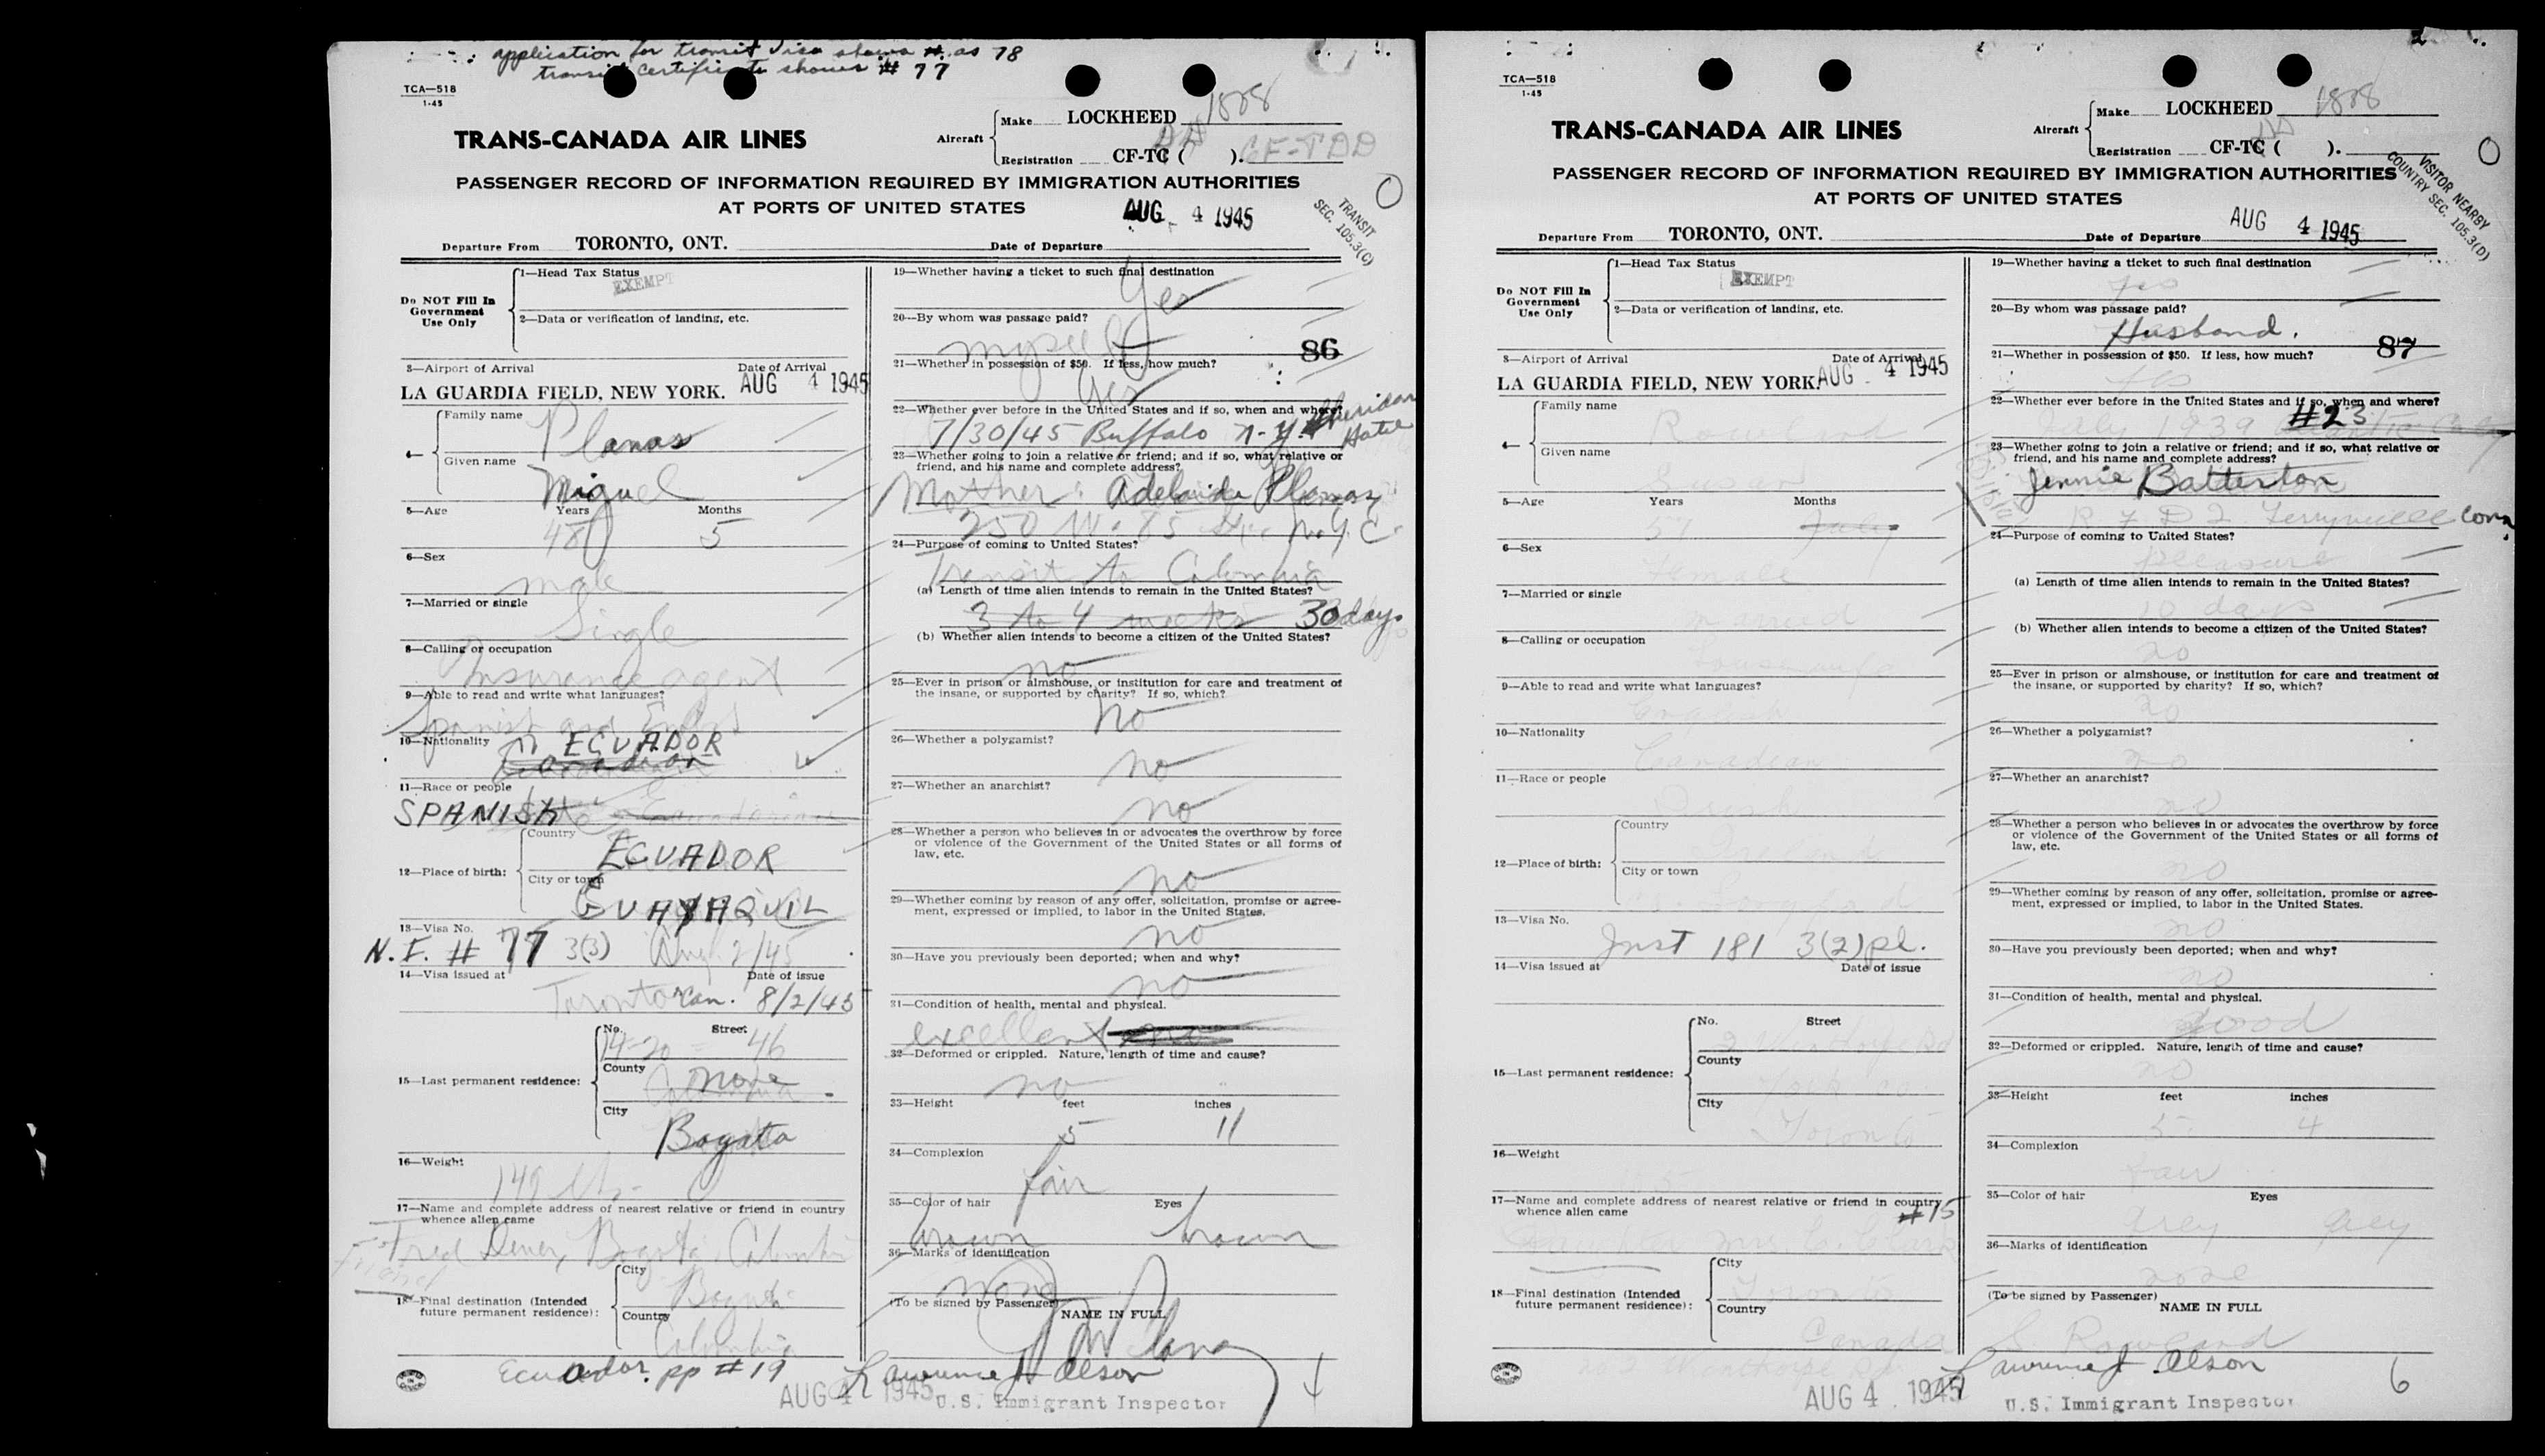 application for transit Visa shows # as 78
transit certificate shows # 77
TCA—518
1-45
TRANS-CANADA AIR LINES
Aircraft
Make LOCKHEED 1808
Registration CF-TC ( ). CF-TDD
PASSENGER RECORD OF INFORMATION REQUIRED BY IMMIGRATION AUTHORITIES
AT PORTS OF UNITED STATES
AUG 4 1945
TRANSIT
SEC. 105.3(C)
Departure From TORONTO, ONT. Date of Departure
Do NOT Fill In
Government
Use Only
1—Head Tax Status
EXEMPT
2—Data or verification of landing, etc.
3—Airport of Arrival Date of Arrival
LA GUARDIA FIELD, NEW YORK. AUG 4 1945
4—
Family name
Planas
Given name
Miguel
5—Age Years Months
48 5
6—Sex
male
7—Married or single
Single
8—Calling or occupation
Insurance agent
9—Able to read and write what languages?
Spanish and English
10—Nationality
ECUADOR
Canadian
11—Race or people
SPANISH
12—Place of birth:
Country
ECUADOR
City or town
GUAYAQUIL
13—Visa No.
N.I. # 77 3(3) Aug. 2/45
14—Visa issued at Date of issue
Toronto Can. 8/2/45
15—Last permanent residence:
No. Street
14-20 = 46
County
none
City
Bogata
16—Weight
149 lbs.
17—Name and complete address of nearest relative or friend in country
whence alien came
Fred Bogota, Colombia
Friend
18—Final destination (Intended
future permanent residence):
City
Bogota
Country
Colombia
Ecuador. pp # 19
AUG 4 1945
19—Whether having a ticket to such final destination
Yes
20—By whom was passage paid?
myself
86
21—Whether in possession of $50. If less, how much?
yes
22—Whether ever before in the United States and if so, when and where?
7/30/45 Buffalo N.Y. Sheridan
Hotel
23—Whether going to join a relative or friend; and if so, what relative or
friend, and his name and complete address?
Mother: Adelaida Planas
250 W. 85 St. N.Y.C.
24—Purpose of coming to United States?
Transit to Colombia
(a) Length of time alien intends to remain in the United States?
3 to 4 weeks 30 days
(b) Whether alien intends to become a citizen of the United States?
no
25—Ever in prison or almshouse, or institution for care and treatment of
the insane, or supported by charity? If so, which?
no
26—Whether a polygamist?
no
27—Whether an anarchist?
no
28—Whether a person who believes in or advocates the overthrow by force
or violence of the Government of the United States or all forms of
law, etc.
no
29—Whether coming by reason of any offer, solicitation, promise or agree-
ment, expressed or implied, to labor in the United States.
no
30—Have you previously been deported; when and why?
no
31—Condition of health, mental and physical.
excellent
32—Deformed or crippled. Nature, length of time and cause?
no
33—Height feet inches
5 11
34—Complexion
fair
35—Color of hair Eyes
brown brown
36—Marks of identification
none
(To be signed by Passenger)
NAME IN FULL
M Planas
Lawrence J. Olson
U.S. Immigrant Inspector
TCA—518
1-45
TRANS-CANADA AIR LINES
Aircraft
Make LOCKHEED 1808
Registration CF-TC ( ).
PASSENGER RECORD OF INFORMATION REQUIRED BY IMMIGRATION AUTHORITIES
AT PORTS OF UNITED STATES
VISITOR NEARBY
COUNTRY SEC. 105.3(D)
AUG 4 1945
Departure From TORONTO, ONT. Date of Departure
Do NOT Fill In
Government
Use Only
1—Head Tax Status
EXEMPT
2—Data or verification of landing, etc.
3—Airport of Arrival Date of Arrival
LA GUARDIA FIELD, NEW YORK. AUG 4 1945
4—
Family name
Rowland
Given name
Susan
5—Age Years Months
57 July
6—Sex
Female
7—Married or single
married
8—Calling or occupation
housewife
9—Able to read and write what languages?
English
10—Nationality
Canadian
11—Race or people
Irish
12—Place of birth:
Country
Ireland
City or town
Longford
13—Visa No.
Inst 181 3(2)pl.
14—Visa issued at Date of issue
15—Last permanent residence:
No. Street
2
County
York Co
City
Toronto
16—Weight
17—Name and complete address of nearest relative or friend in country
whence alien came
#15
Mrs. C. Clark
18—Final destination (Intended
future permanent residence):
City
Toronto
Country
Canada
AUG 4 1945
19—Whether having a ticket to such final destination
yes
20—By whom was passage paid?
Husband.
87
21—Whether in possession of $50. If less, how much?
yes
22—Whether ever before in the United States and if so, when and where?
#23
July 1939
23—Whether going to join a relative or friend; and if so, what relative or
friend, and his name and complete address?
Jennie Batterton
R F D 2 Terryville Conn.
24—Purpose of coming to United States?
pleasure
(a) Length of time alien intends to remain in the United States?
days
(b) Whether alien intends to become a citizen of the United States?
no
25—Ever in prison or almshouse, or institution for care and treatment of
the insane, or supported by charity? If so, which?
no
26—Whether a polygamist?
no
27—Whether an anarchist?
no
28—Whether a person who believes in or advocates the overthrow by force
or violence of the Government of the United States or all forms of
law, etc.
no
29—Whether coming by reason of any offer, solicitation, promise or agree-
ment, expressed or implied, to labor in the United States.
no
30—Have you previously been deported; when and why?
no
31—Condition of health, mental and physical.
good
32—Deformed or crippled. Nature, length of time and cause?
no
33—Height feet inches
5 4
34—Complexion
fair
35—Color of hair Eyes
grey grey
36—Marks of identification
none
(To be signed by Passenger)
NAME IN FULL
S. Rowland
Lawrence J. Olson
6
U.S. Immigrant Inspector